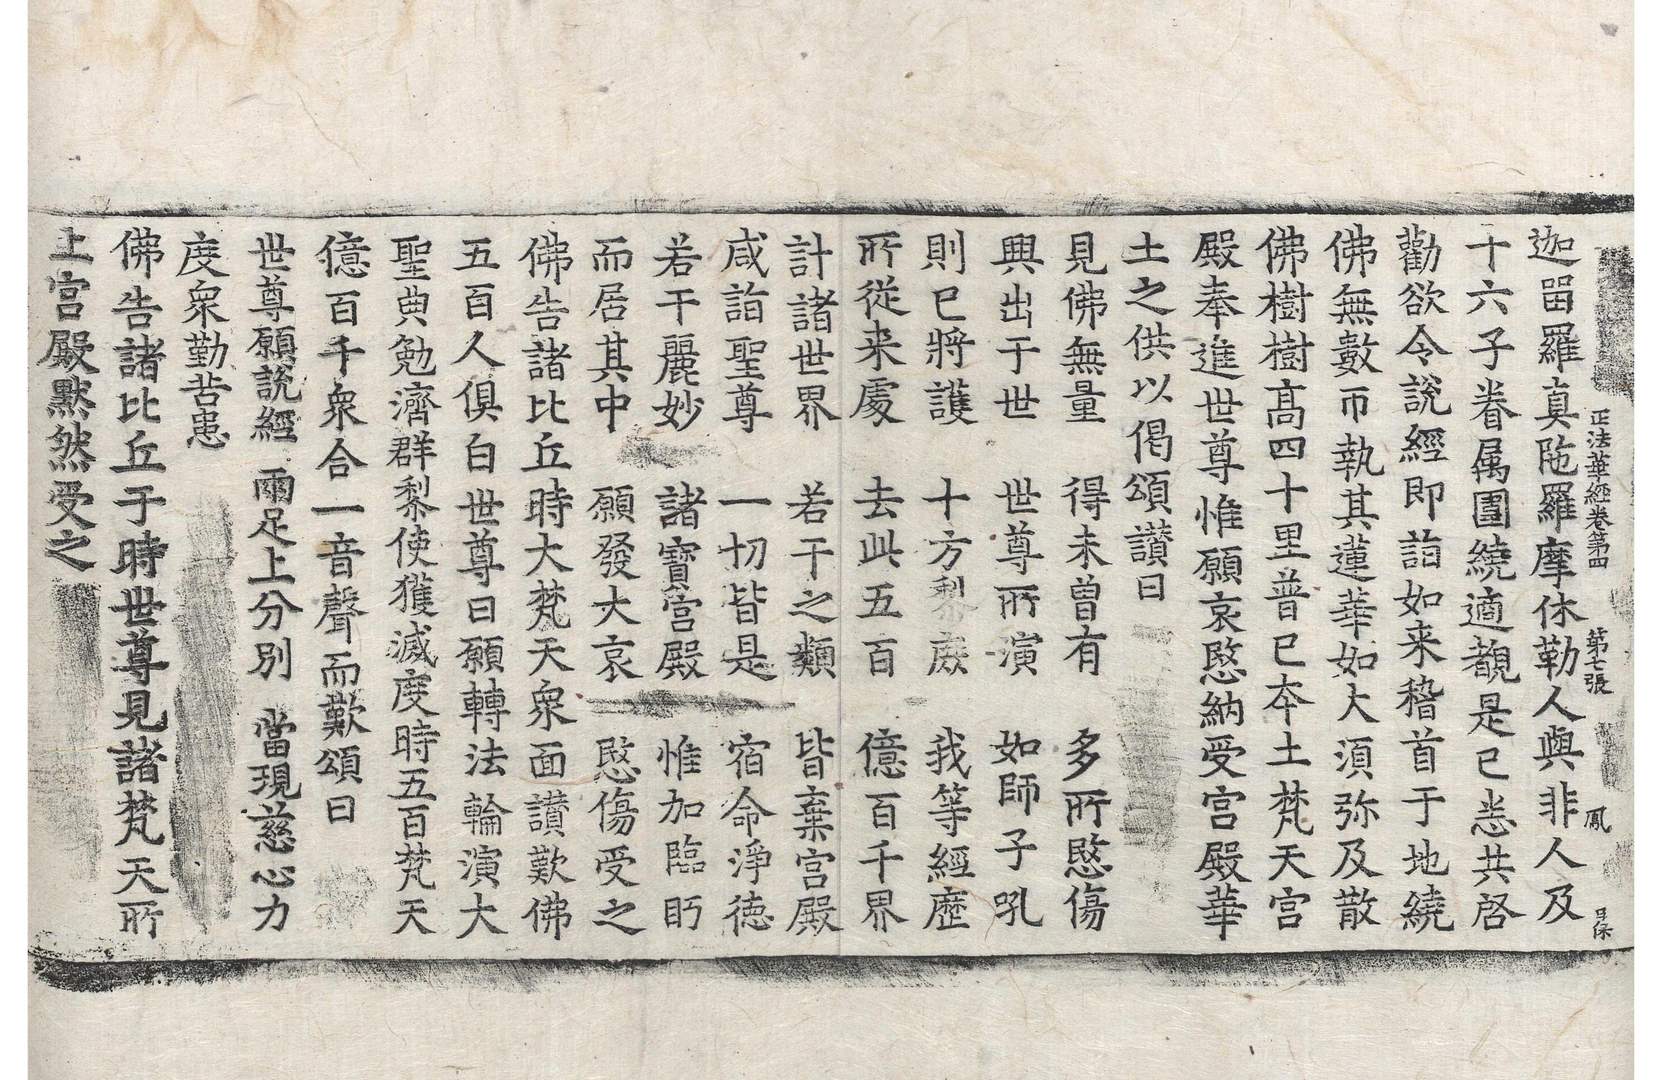 正法華經卷第四　第七張　鳳
迦留羅真陁羅摩休勒人與非人及
十六子眷属圍繞適覩是已悉共啓
勸欲令說經即詣如来稽首于地繞
佛無數帀執其蓮華如大湏弥及散
佛樹樹髙四十里普已夲土梵天宫
殿奉進世尊惟願哀愍納受宫殿華
土之供以偈頌讃曰
見佛無量　得未曽有　多所愍傷
興出于世　世尊所演　如師子吼
則已將護　十方黎庻　我等經歷
所從来處　去此五百　億百千界
計諸世界　若干之類　皆棄宫殿
咸詣聖尊　一切皆是　宿命淨德
若干麗妙　諸寶宫殿　惟加臨眄
而居其中　願發大哀　愍傷受之
佛告諸比丘時大梵天衆面讃歎佛
五百人俱白世尊曰願轉法輪演大
聖典勉濟群黎使獲滅度時五百梵天
億百千衆合一音聲而歎頌曰
世尊願說經　兩足上分別　當現慈心力
度衆勤苦患
佛告諸比丘于時世尊見諸梵天所
上宫殿默然受之